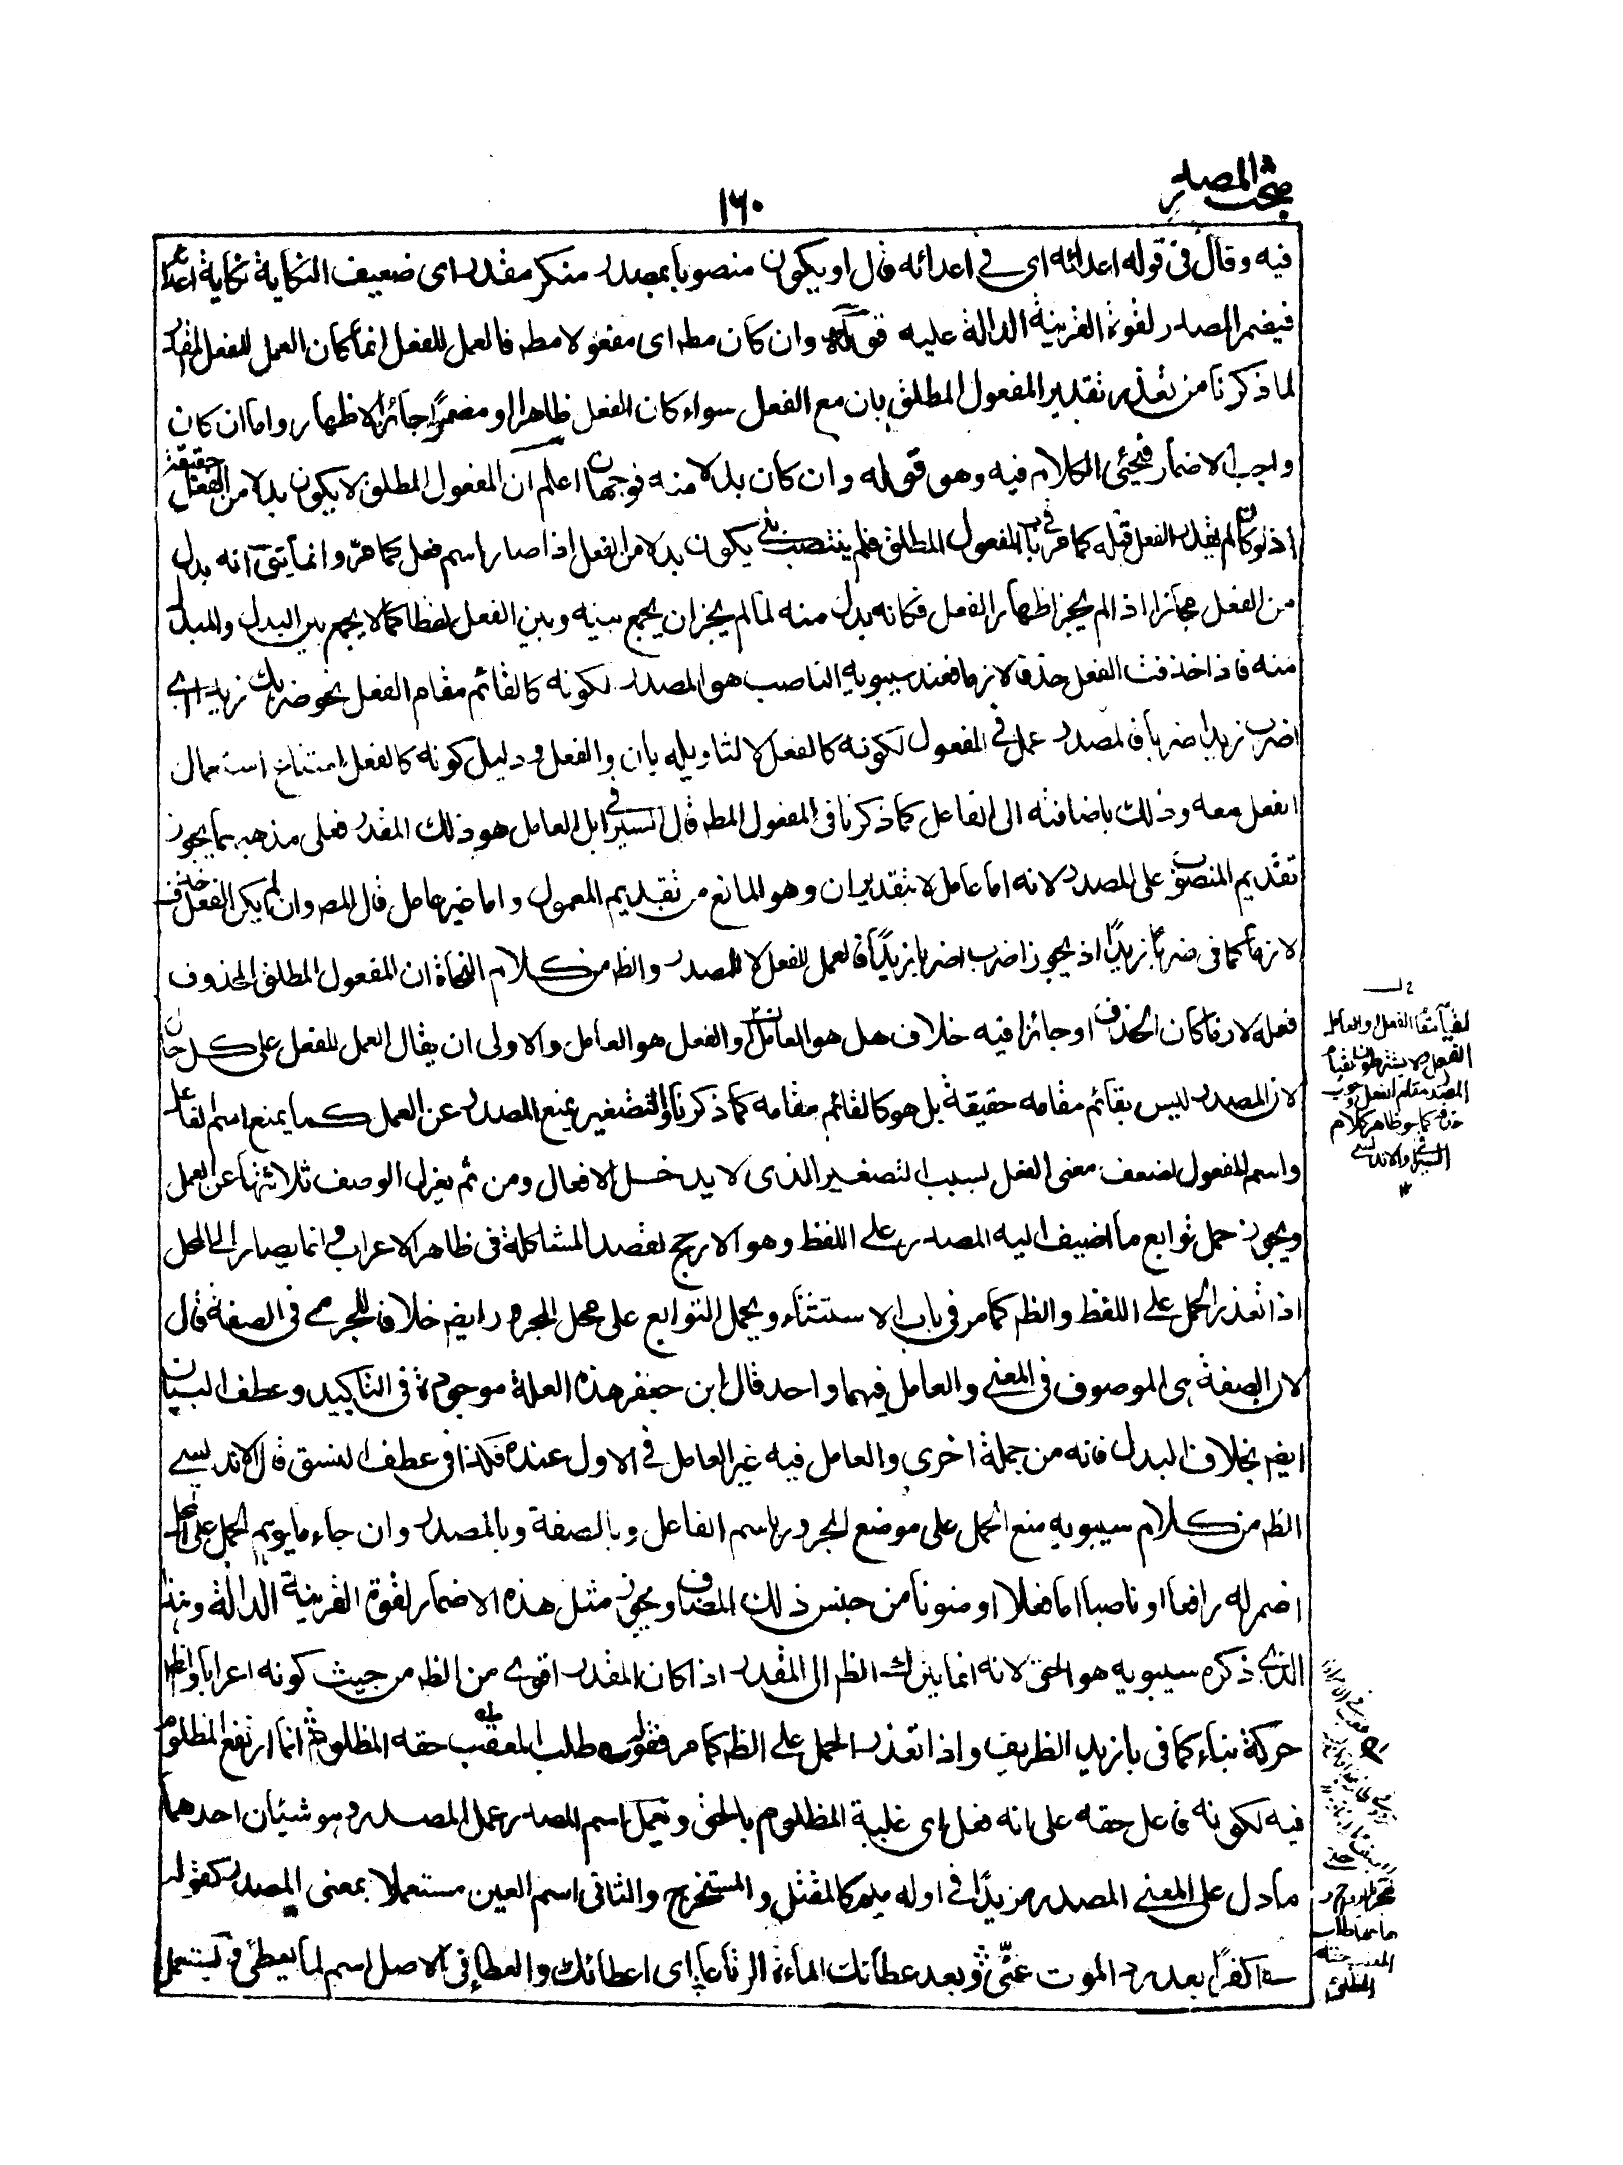 بحث المصدر
١٦٠
فيه وقال فى قوله اعدائه اى فى اعدائه قال او يكون منصوبا بمصدر منكر مقدر اى ضعيف النكاية نكاية اعدائه
فيضمر المصدر لقوة القرينة الدالة عليه قوله وان كان مطه اى مفعولا مطه فالعمل للفعل انما كان العمل للفعل المقدر
لما ذكرنا من تعذر تقدير المفعول المطلق بان مع الفعل سواء كان الفعل ظاهرا او مضمرا جائز الاظهار واما ان كان
واجب الاضمار فيجئى الكلام فيه وهو قوله وان كان بدلا منه فوجهان اعلم ان المفعول المطلق لا يكون بدلا من الفعل حقيقة
اذ لو كان لم يقدر الفعل قبله كما مر فى باب المفعول المطلق فلم ينتصب بلى يكون بدلا من الفعل اذا صار اسم فعل كما مر وانما يق انه بدل
من الفعل مجازا اذا لم يجز اظهار الفعل فكانه بدل منه لما لم يجز ان يجمع بينه وبين الفعل لفظا كما لا يجمع بين البدل والمبدل
منه فاذا حذفت الفعل حذفا لازما فعند سيبويه الناصب هو المصدر لكونه كالقائم مقام الفعل نحو ضربك زيدا اى
اضرب زيدا ضربا فالمصدر عمل فى المفعول لكونه كالفعل لا لتاويله بان والفعل ودليل كونه كالفعل امتناع استعمال
الفعل معه وذلك باضافته الى الفاعل كما ذكرنا فى المفعول المطه قال السيرافى بل العامل هو ذلك المقدر فعلى مذهبهما يجوز
تقديم المنصوب على المصدر لانه اما عامل لا بتقدير ان وهو المانع من تقديم المعمول واما غير عامل قال المص وان لم يكن الفعل حذف
لازما كما فى ضربا زيدا اذ يجوز اضرب ضربا زيدا فالعمل للفعل لا للمصدر والظ من كلام النحاة ان المفعول المطلق المحذوف
فعله لازما كان الحذف او جائزا فيه خلاف هل هو العامل او الفعل هو العامل والاولى ان يقال العمل للفعل على كل حال
لان المصدر ليس بقائم مقامه حقيقة بل هو كالقائم مقامه كما ذكرنا والتصغير يمنع المصدر عن العمل كما يمنع اسم الفاعل
واسم المفعول لضعف معنى الفعل بسبب التصغير الذى لا يدخل الافعال ومن ثم يعزل الوصف ثلاثتها عن العمل
ويجوز حمل توابع ما اضيف اليه المصدر على اللفظ وهو الارجح لقصد المشاكلة فى ظاهر الاعراب وانما يصار الى المحل
اذا تعذر الحمل على اللفظ والظ كما مر فى باب الاستثناء ويحمل التوابع على محل المجرور ايض خلافا للجرمى فى الصفة قال
لان الصفة هى الموصوف فى المعنى والعامل فيهما واحد قال ابن جعفر هذه العلة موجودة فى التاكيد وعطف البيان
ايض بخلاف البدل فانه من جملة اخرى والعامل فيه غير العامل فى الاول عنده فكذا فى عطف النسق قال الاندلسى
الظ من كلام سيبويه منع الحمل على موضع المجرور باسم الفاعل وبالصفة وبالمصدر وان جاء ما يوهم الحمل على المحل
اضمر له رافعا او ناصبا اما فعلا او منونا من جنس ذلك المضاف ويجوز مثل هذه الاضمار لقوة القرينة الدالة وهذا
الذى ذكره سيبويه هو الحق لانه انما يترك الظ الى المقدر اذا كان المقدر اقوى من الظ من حيث كونه اعرابا والظ
حركة بناء كما فى يا زيد الظريف واذا تعذر الحمل على الظ كما مر فقوله طلب المعقب حقه المظلوم انما ارتفع المظلوم
فيه لكونه فاعل حقه على انه فعل اى غلبة المظلوم بالحق ويعمل اسم المصدر عمل المصدر وهو شيئان احدهما
ما دل على المعنى المصدر مزيدا فى اوله ميم كالمقتل والمستخرج والثانى اسم العين مستعملا بمعنى المصدر كقوله
اكفرا بعد رد الموت عنى وبعد عطائك المائة الرتاعا اى اعطائك والعطا فى الاصل اسم لما يعطى و يستعمل
الفعل والعامل
المصدر مقام الفعل وجوب
حذفه كما هو ظاهر كلام
السيرافى والاندلسى